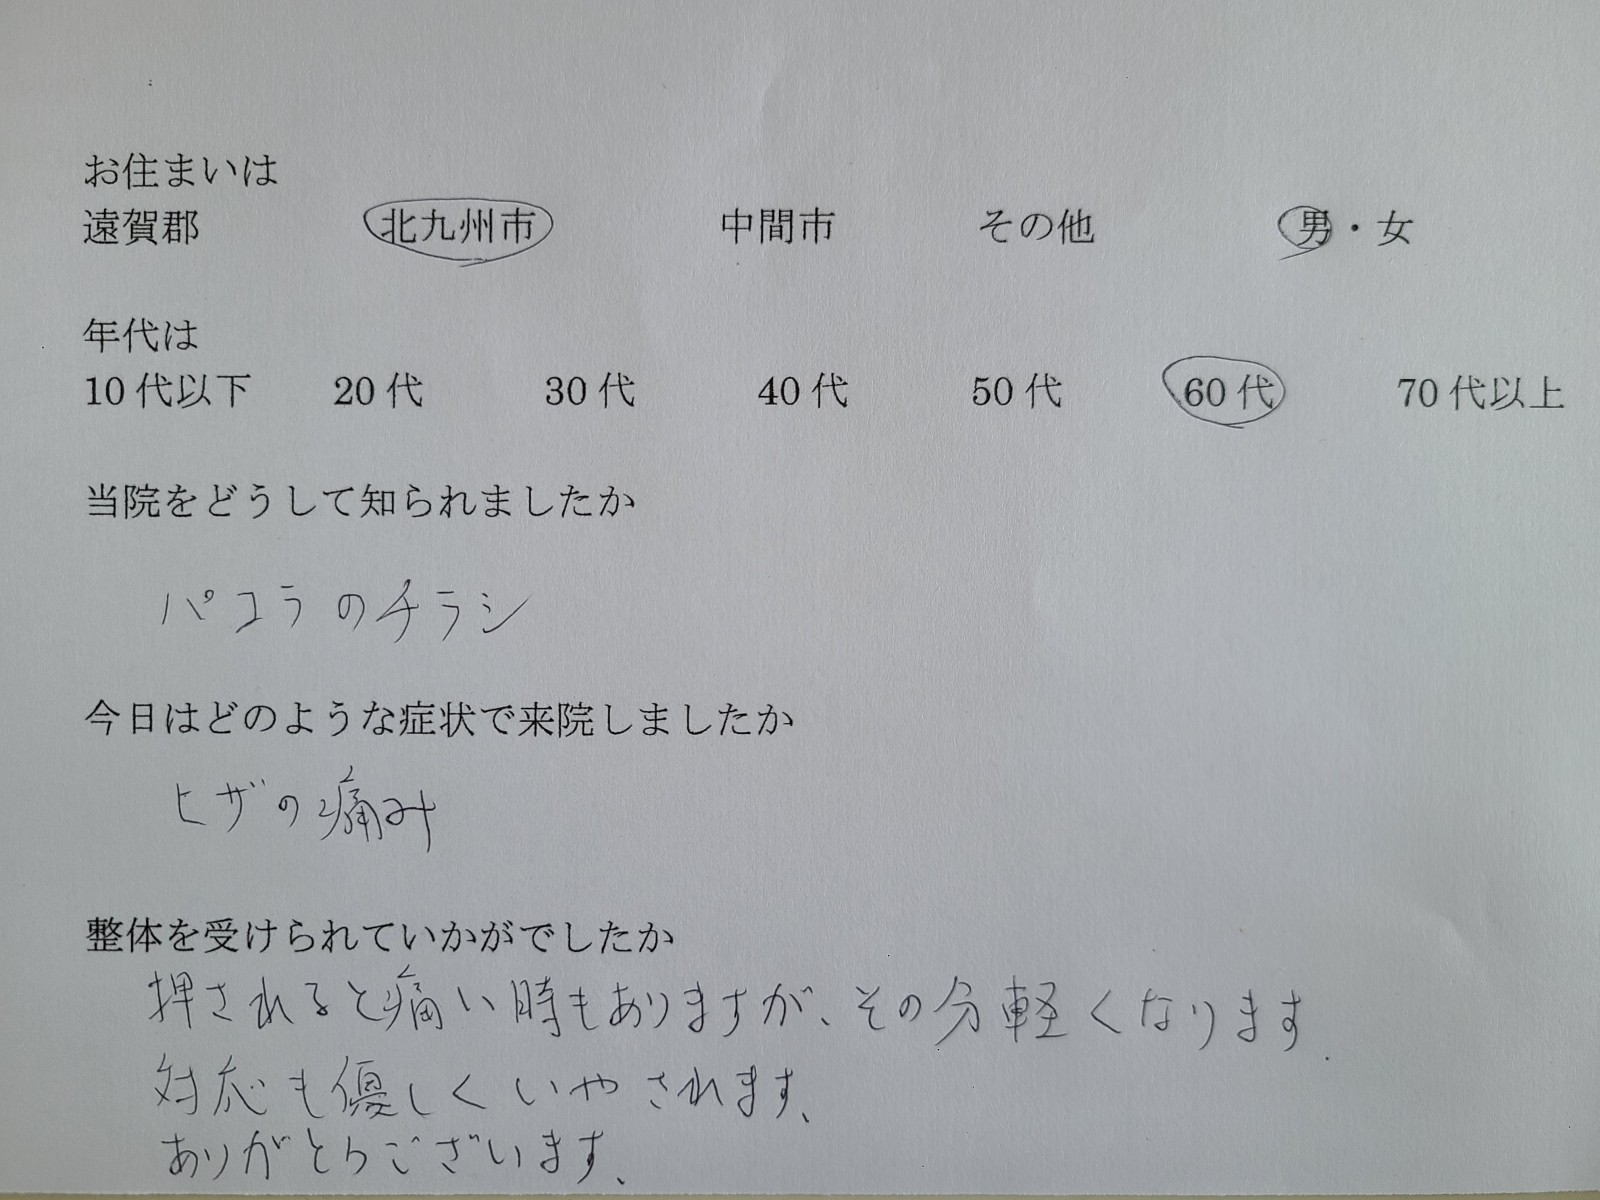 お住まいは
遠賀郡 北九州市 中間市 その他 男・女
年代は
10代以下 20代 30代 40代 50代 60代 70代以上
当院をどうして知られましたか
パコラのチラシ
今日はどのような症状で来院しましたか
ヒザの痛み
整体を受けられていかがでしたか
押されると痛い時もありますが、その分軽くなります.
対応も優しくいやされます、
ありがとうございます、